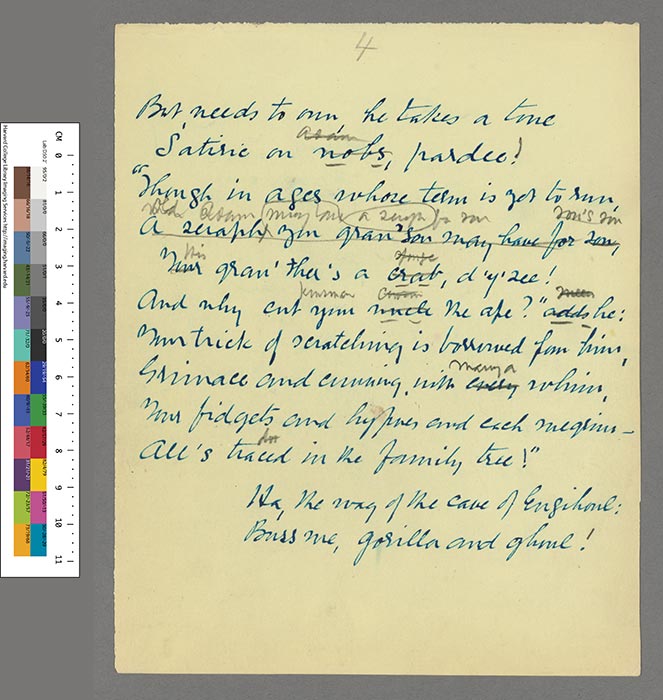 4
But, needs to own, he takes a tone
Adam
Satiric on nobs, pardee!
"Though in ages whose term is yet to run,
Old Adam may one a seraph for son son's son
A seraph your gran'son may have for son,
His sponge
Your gran'ther's a crab, d'y'see!
And why cut your uncle the ape?" adds he:
Your trick of scratching is borrowed from him,
many a
Grimace and cunning, with every whim,
Your fidgets and hypoes and each megrim—
do
All's traced in the family tree!"
Ha, the wag of the cave of Engihoul:
Buss me, gorilla and ghoul!
CM 0 1 2 3 4 5 6 7 8 9 10 11
Harvard College Library Imaging Services http://imaging.harvard.edu